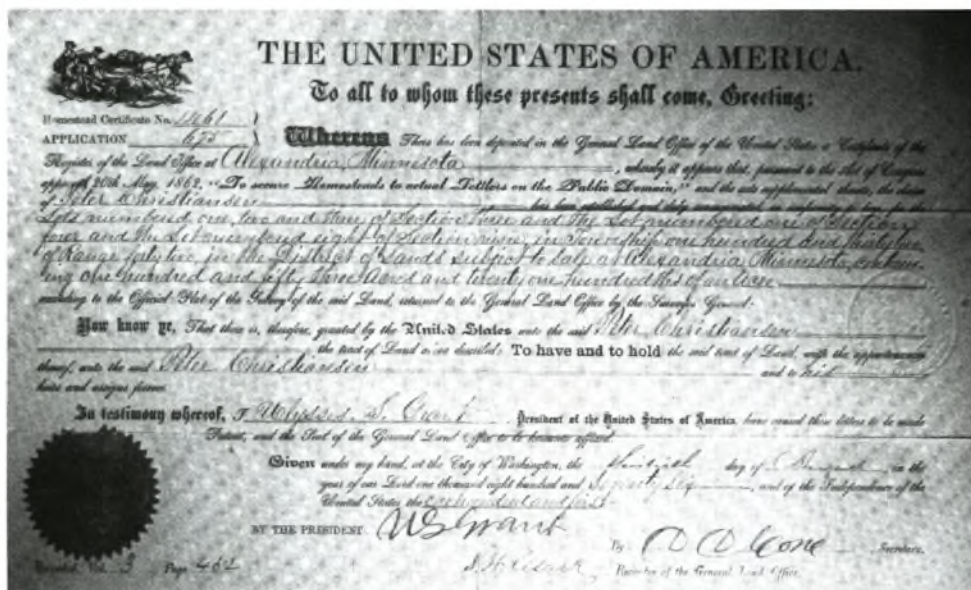 THE UNITED STATES OF AMERICA.
To all to whom these presents shall come, Greeting:
Homestead Certificate No. 1461
APPLICATION 675
Whereas There has been deposited in the General Land Office of the United States a Certificate of the
Register of the Land Office at Alexandria, Minnesota, whereby it appears that, pursuant to the Act of Congress
approved 20th May, 1862, "To secure Homesteads to actual Settlers on the Public Domain," and the acts supplemental thereto, the claim
of Peter Christiansen has been established and duly consummated for the
Lots numbered one, two and three of Section three and the Lot numbered one of Section
four and the Lot numbered eight of Section nine, in Township one hundred and
of Range forty two, in the District of Lands subject to sale at Alexandria, Minnesota, contain-
ing one hundred and fifty three Acres and twenty one hundredths of an acre
according to the Official Plat of the Survey of the said Land, returned to the General Land Office by the Surveyor General:
Now know ye, That there is, therefore, granted by the United States unto the said Peter Christiansen
the tract of Land above described: To have and to hold the said tract of Land, with the appurtenances
thereof, unto the said Peter Christiansen and to his
heirs and assigns forever.
In testimony whereof, I Ulysses S. Grant, President of the United States of America, have caused these letters to be made
Patent, and the Seal of the General Land Office to be hereunto affixed.
Given under my hand, at the City of Washington, the day of August, in the
year of our Lord one thousand eight hundred and Seventy Six, and of the Independence of the
United States the One hundred and first
BY THE PRESIDENT: U S Grant
By D D Cone Secretary.
Recorded Vol. 3 Page 462 Recorder of the General Land Office.